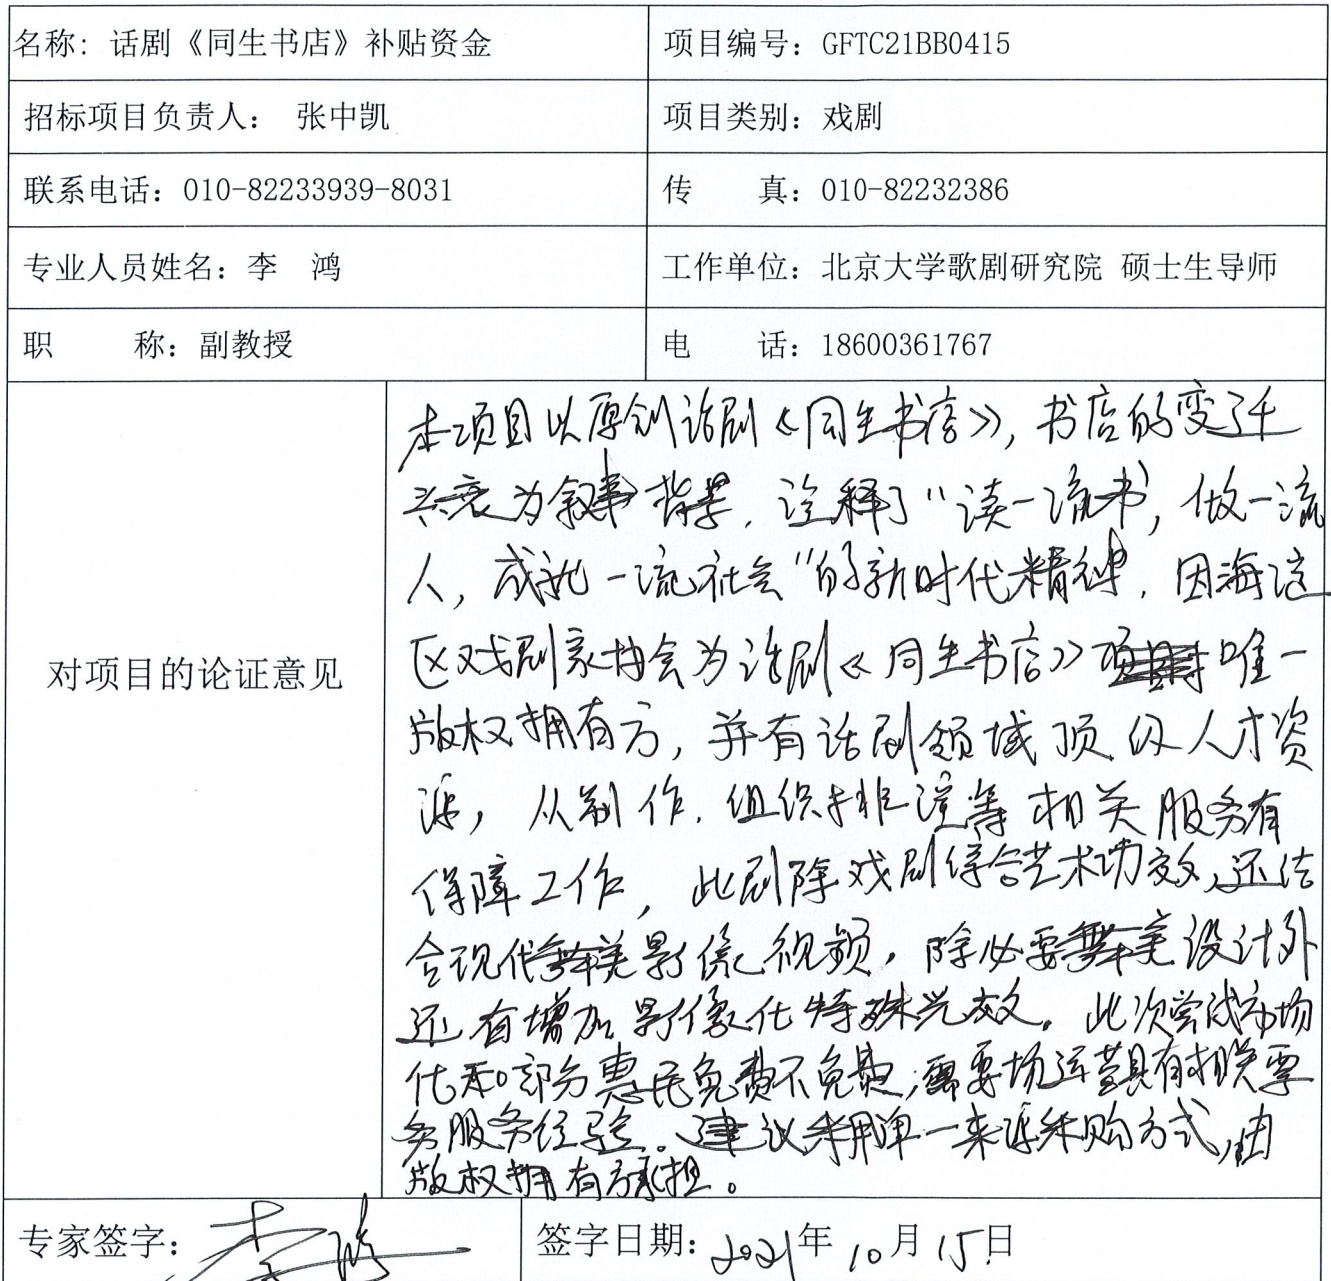 名称: 话剧《同生书店》补贴资金
项目编号: GFTC21BB0415
招标项目负责人: 张中凯
项目类别: 戏剧
联系电话: 010-82233939-8031
传 真: 010-82232386
专业人员姓名: 李 鸿
工作单位: 北京大学歌剧研究院 硕士生导师
职 称: 副教授
电 话: 18600361767
对项目的论证意见
本项目以原创话剧《同生书店》,书店的变迁
兴衰为叙事背景. 诠释了“读一流书, 做一流
人, 成就一流社会”的新时代精神. 因海淀
区戏剧家协会为话剧《同生书店》唯一
版权拥有方, 并有话剧领域顶级人才资
源, 从制作. 组织排演等相关服务有
保障工作, 此剧除戏剧综合艺术功效, 还结
合现代舞美影像视频, 除必要舞美设计外
还有增加影像化特殊光效。此次尝试市场
化和部分惠民免费不免费, 需要场运营具有相关票
务服务经验。建议采用单一来源采购方式, 由
版权拥有方承担。
专家签字: 李鸿
签字日期: 2021年10月15日